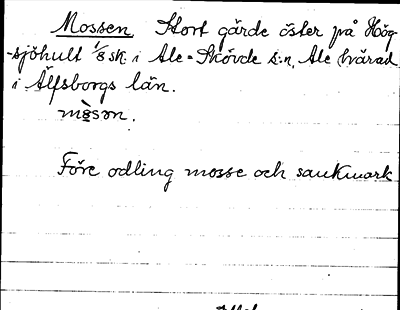 Mossen Stort gärde öster på Hög-
-sjöhult 1/8 sk. i Ale-Skövde s:n, Ale härad
i Älfsborgs län.
Före odling mosse och sankmark